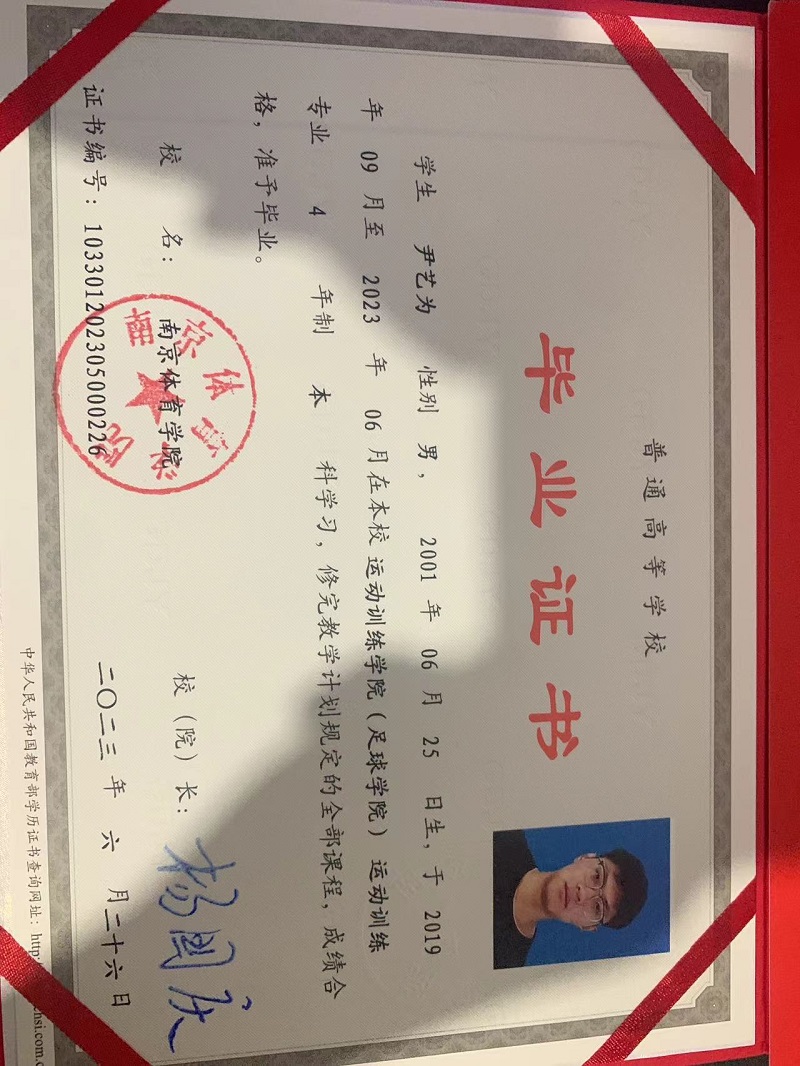 普通高等学校
毕业证书
学生 尹艺为 性别 男， 2001 年 06 月 25 日生，于 2019
年 09 月至 2023 年 06 月在本校 运动训练学院（足球学院）运动训练
专业 4 年制 本 科学习，修完教学计划规定的全部课程，成绩合
格，准予毕业。
校 名： 南京体育学院
校（院）长： 杨国庆
南京体育学院
证书编号： 103301202305000226
二〇二三 年 六 月二十六 日
中华人民共和国教育部学历证书查询网址：